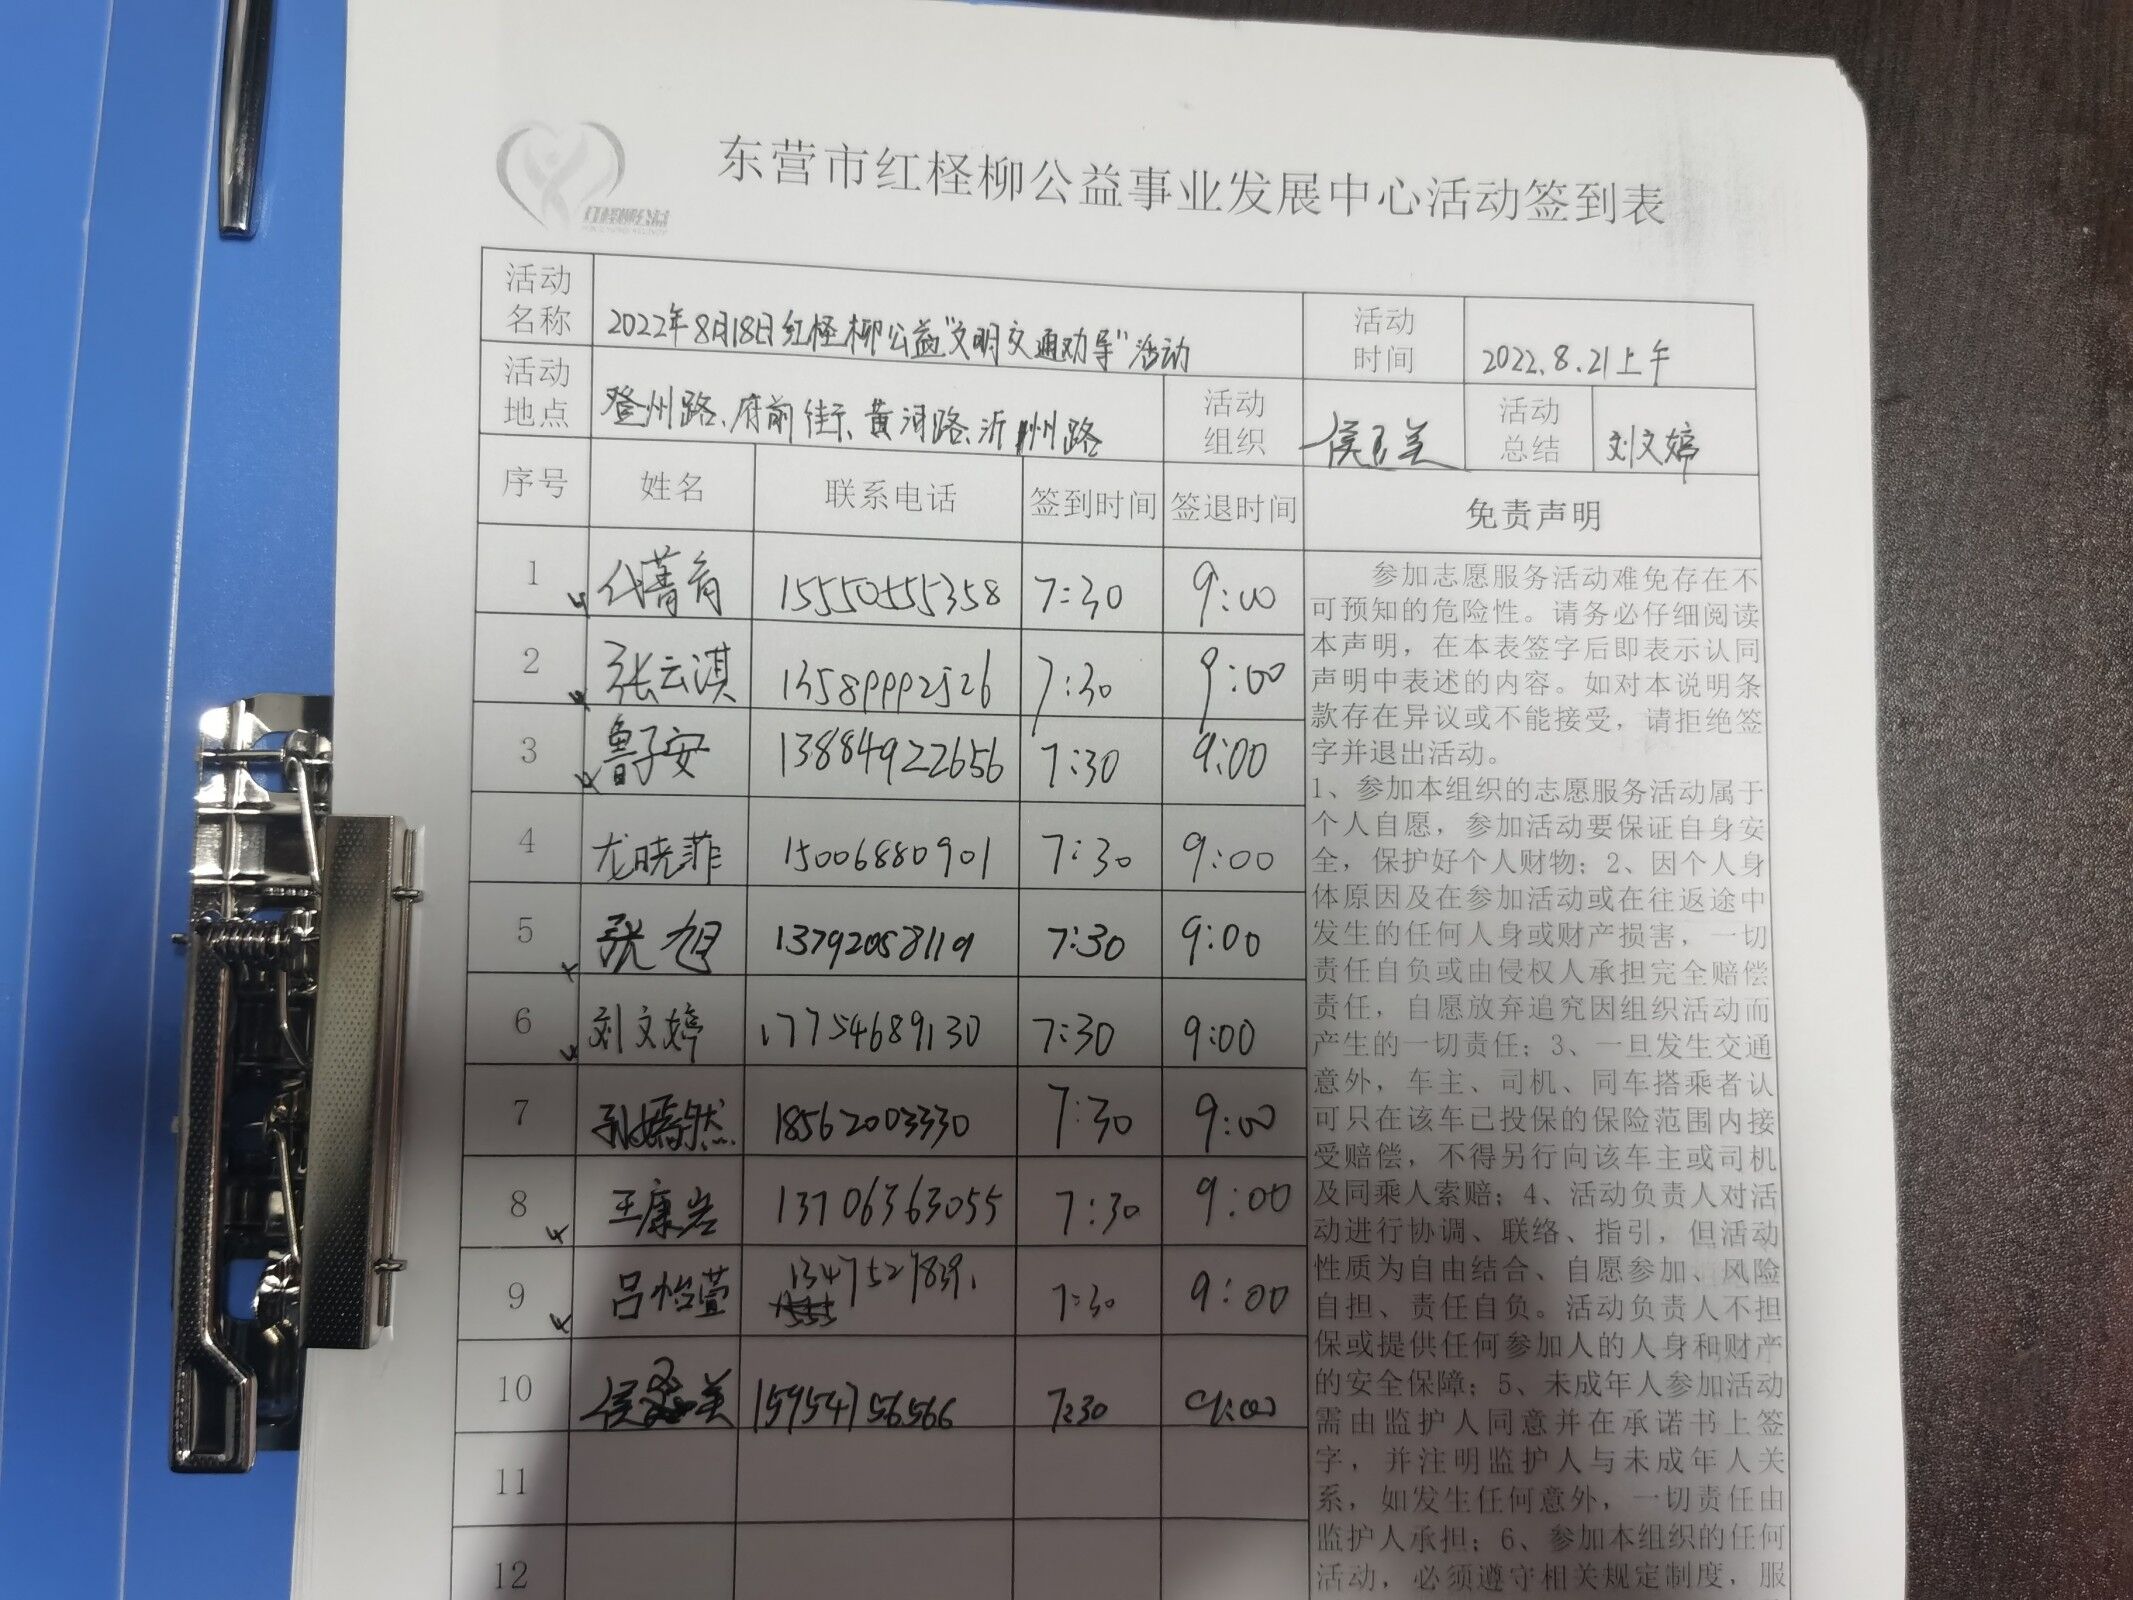 红柽柳公益
东营市红柽柳公益事业发展中心活动签到表
活动名称 2022年8月18日红柽柳公益"文明交通劝导"活动 活动时间 2022.8.21上午
活动地点 登州路、府前街、黄河路、沂州路 活动组织 侯玉美 活动总结 刘文婷
序号 姓名 联系电话 签到时间 签退时间 免责声明
1 代菁育 15550555358 7:30 9:00
2 张云淇 13589992526 7:30 9:00
3 鲁子安 13884922656 7:30 9:00
4 尤晓菲 15006880901 7:30 9:00
5 张旭 13792058119 7:30 9:00
6 刘文婷 17754689130 7:30 9:00
7 孔嫣然 18562003330 7:30 9:00
8 王康岩 13706363055 7:30 9:00
9 吕怡萱 1347527839 7:30 9:00
10 侯美 15954756566 7:30 9:00
11
12
参加志愿服务活动难免存在不
可预知的危险性。请务必仔细阅读
本声明，在本表签字后即表示认同
声明中表述的内容。如对本说明条
款存在异议或不能接受，请拒绝签
字并退出活动。
1、参加本组织的志愿服务活动属于
个人自愿，参加活动要保证自身安
全，保护好个人财物；2、因个人身
体原因及在参加活动或在往返途中
发生的任何人身或财产损害，一切
责任自负或由侵权人承担完全赔偿
责任，自愿放弃追究因组织活动而
产生的一切责任；3、一旦发生交通
意外，车主、司机、同车搭乘者认
可只在该车已投保的保险范围内接
受赔偿，不得另行向该车主或司机
及同乘人索赔；4、活动负责人对活
动进行协调、联络、指引，但活动
性质为自由结合、自愿参加、风险
自担、责任自负。活动负责人不担
保或提供任何参加人的人身和财产
的安全保障；5、未成年人参加活动
需由监护人同意并在承诺书上签
字，并注明监护人与未成年人关
系，如发生任何意外，一切责任由
监护人承担；6、参加本组织的任何
活动，必须遵守相关规定制度，服